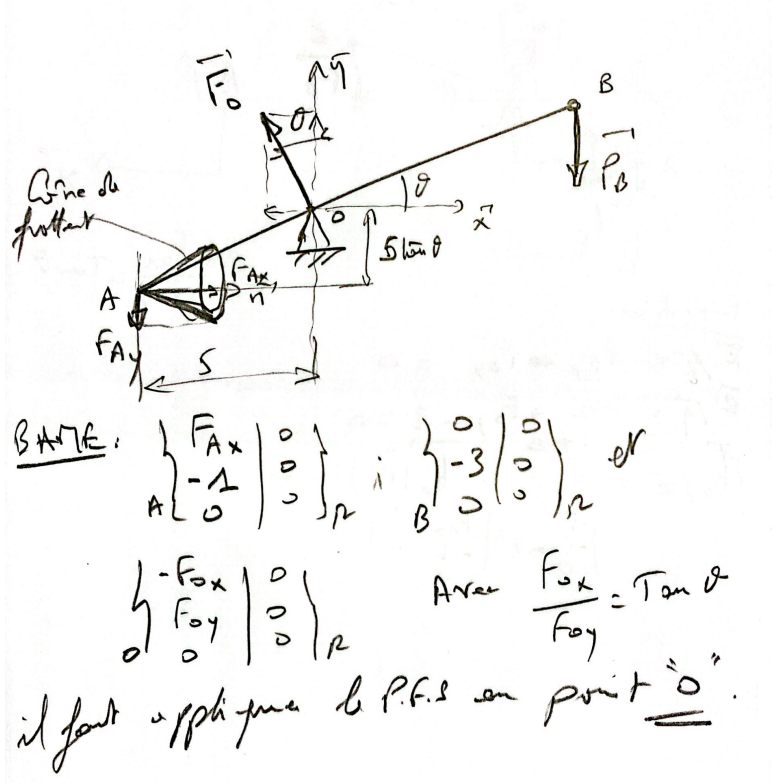 F₀ y
B
θ
P_B
Cône de frottent
θ
o x
5 tan θ
A F_Ax n
F_Ay
5
BAME : A { F_Ax | 0 -1 | 0 0 | 0 }_R ; B { 0 | 0 -3 | 0 0 | 0 }_R et
O { -F_ox | 0 F_oy | 0 0 | 0 }_R Avec F_ox / F_oy = Tan θ
il faut appliquer le P.F.S au point "O".